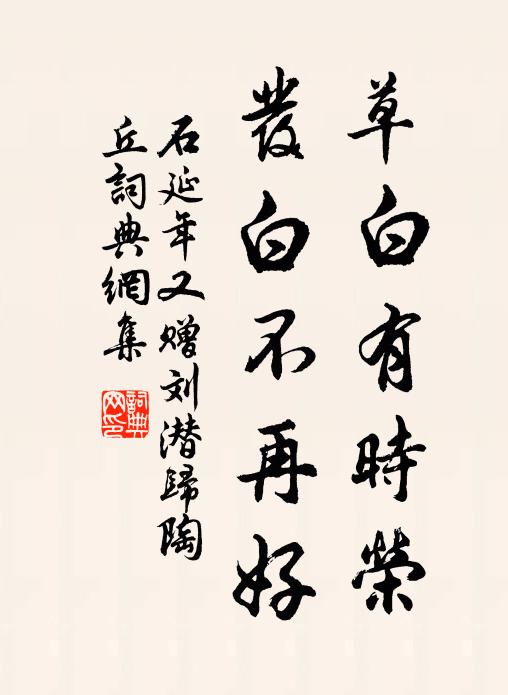 草白有時榮
發白不再好
石延年又贈刘潜歸陶
丘詞典網集
詞典
网印